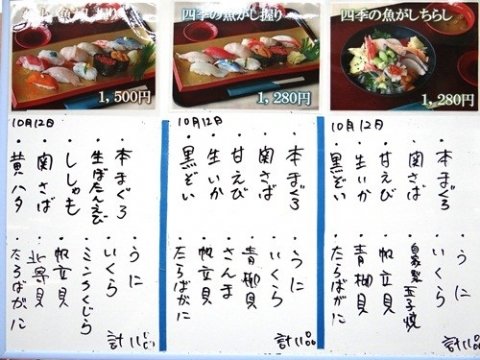 1,500円
10月12日
・本まぐろ
・生ぼたんえび
・ししゃも
・関さば
・黄ハタ
・うに
・いくら
・ミンクくじら
・帆立貝
・北寄貝
・たらばがに
計11
四季の魚がし握り
1,280円
10月12日
・本まぐろ
・関さば
・甘えび
・生いか
・黒ぞい
・うに
・いくら
・青柳貝
・さんま
・帆立貝
・たらばがに
計11品
四季の魚がしちらし
1,280円
10月12日
・本まぐろ
・関さば
・甘えび
・生いか
・黒ぞい
・うに
・いくら
・自家製玉子焼
・帆立貝
・青柳貝
・たらばがに
計11品